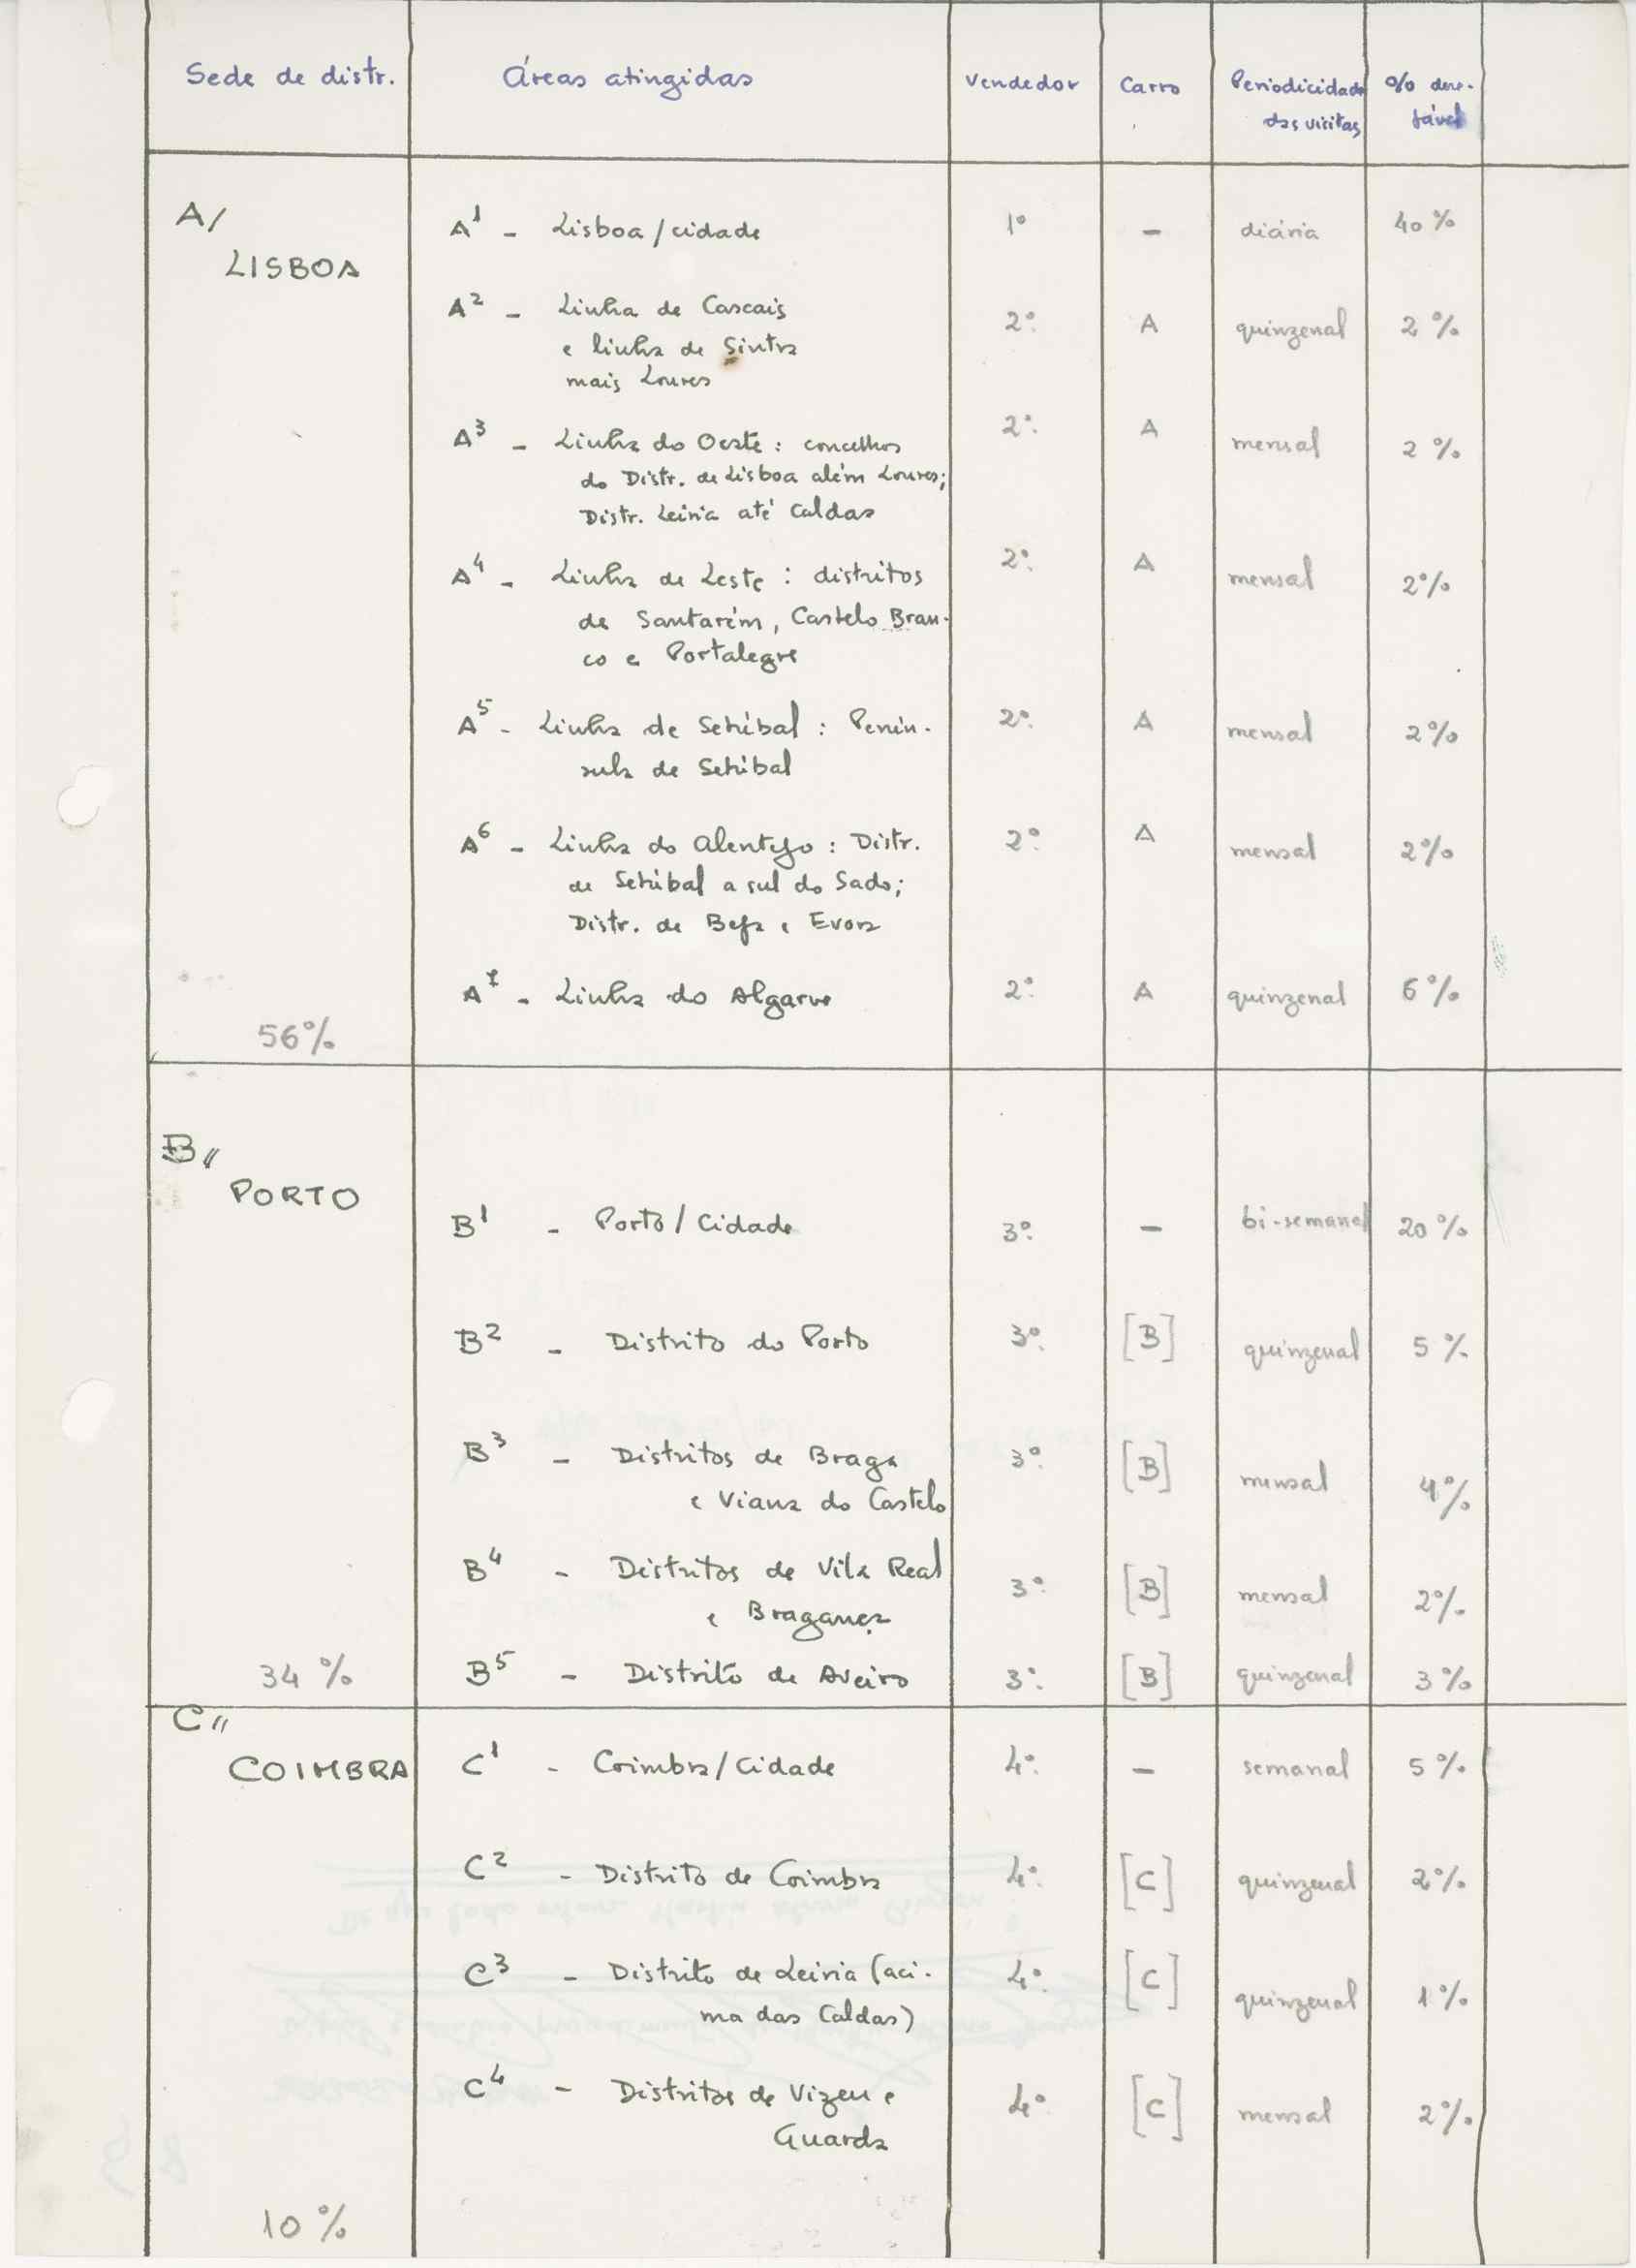 Sede de distr. Áreas atingidas Vendedor Carro Periodicidade % dese-
das visitas jável
A/ A¹ - Lisboa/cidade 1º - diária 40%
LISBOA
A² - Linha de Cascais 2º A quinzenal 2%
e linha de Sintra
mais Loures
A³ - Linha do Oeste: concelhos 2º A mensal 2%
do Distr. de Lisboa além Loures;
Distr. Leiria até Caldas
A⁴ - Linha de Leste: distritos 2º A mensal 2%
de Santarém, Castelo Bran-
co e Portalegre
A⁵ - Linha de Setúbal: Penín- 2º A mensal 2%
sula de Setúbal
A⁶ - Linha do Alentejo: Distr. 2º A mensal 2%
de Setúbal a sul do Sado;
Distr. de Beja e Evora
A⁷ - Linha do Algarve 2º A quinzenal 6%
56%
B//
PORTO
B¹ - Porto/Cidade 3º - bi-semanal 20%
B² - Distrito do Porto 3º [B] quinzenal 5%
B³ - Distritos de Braga 3º [B] mensal 4%
e Viana do Castelo
B⁴ - Distritos de Vila Real 3º [B] mensal 2%
e Bragança
34% B⁵ - Distrito de Aveiro 3º [B] quinzenal 3%
C//
COIMBRA C¹ - Coimbra/Cidade 4º - semanal 5%
C² - Distrito de Coimbra 4º [C] quinzenal 2%
C³ - Distrito de Leiria (aci- 4º [C] quinzenal 1%
ma das Caldas)
C⁴ - Distritos de Vizeu e 4º [C] mensal 2%
Guarda
10%